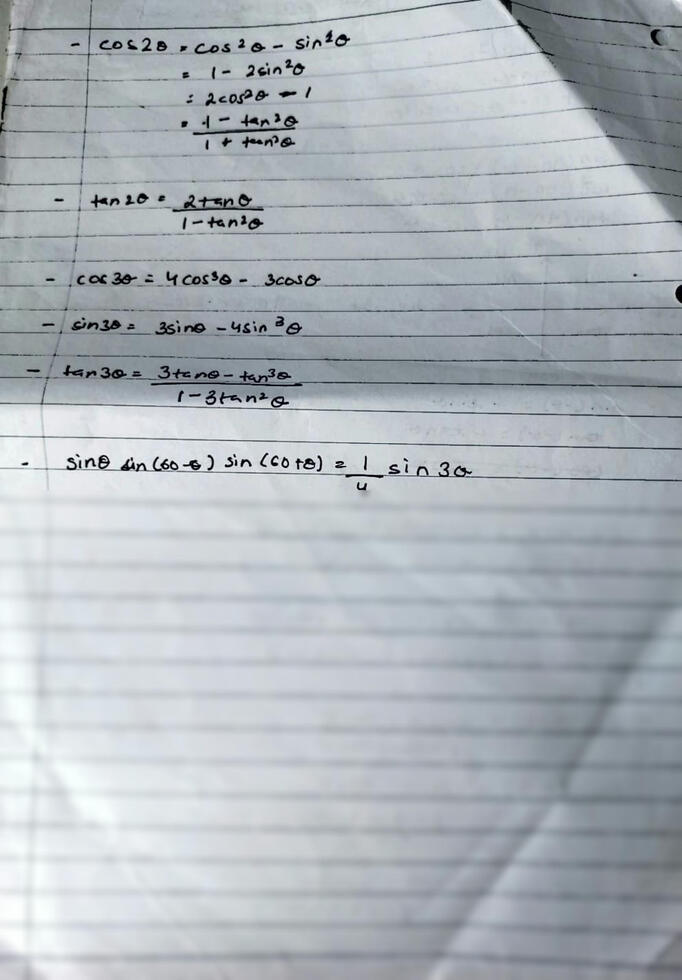 - cos2θ = cos²θ - sin²θ
= 1 - 2sin²θ
= 2cos²θ - 1
= 1 - tan²θ
1 + tan²θ
- tan2θ = 2tanθ
1 - tan²θ
- cos3θ = 4cos³θ - 3cosθ
- sin3θ = 3sinθ - 4sin³θ
- tan3θ = 3tanθ - tan³θ
1 - 3tan²θ
- sinθ sin(60-θ) sin(60+θ) = 1 sin3θ
4